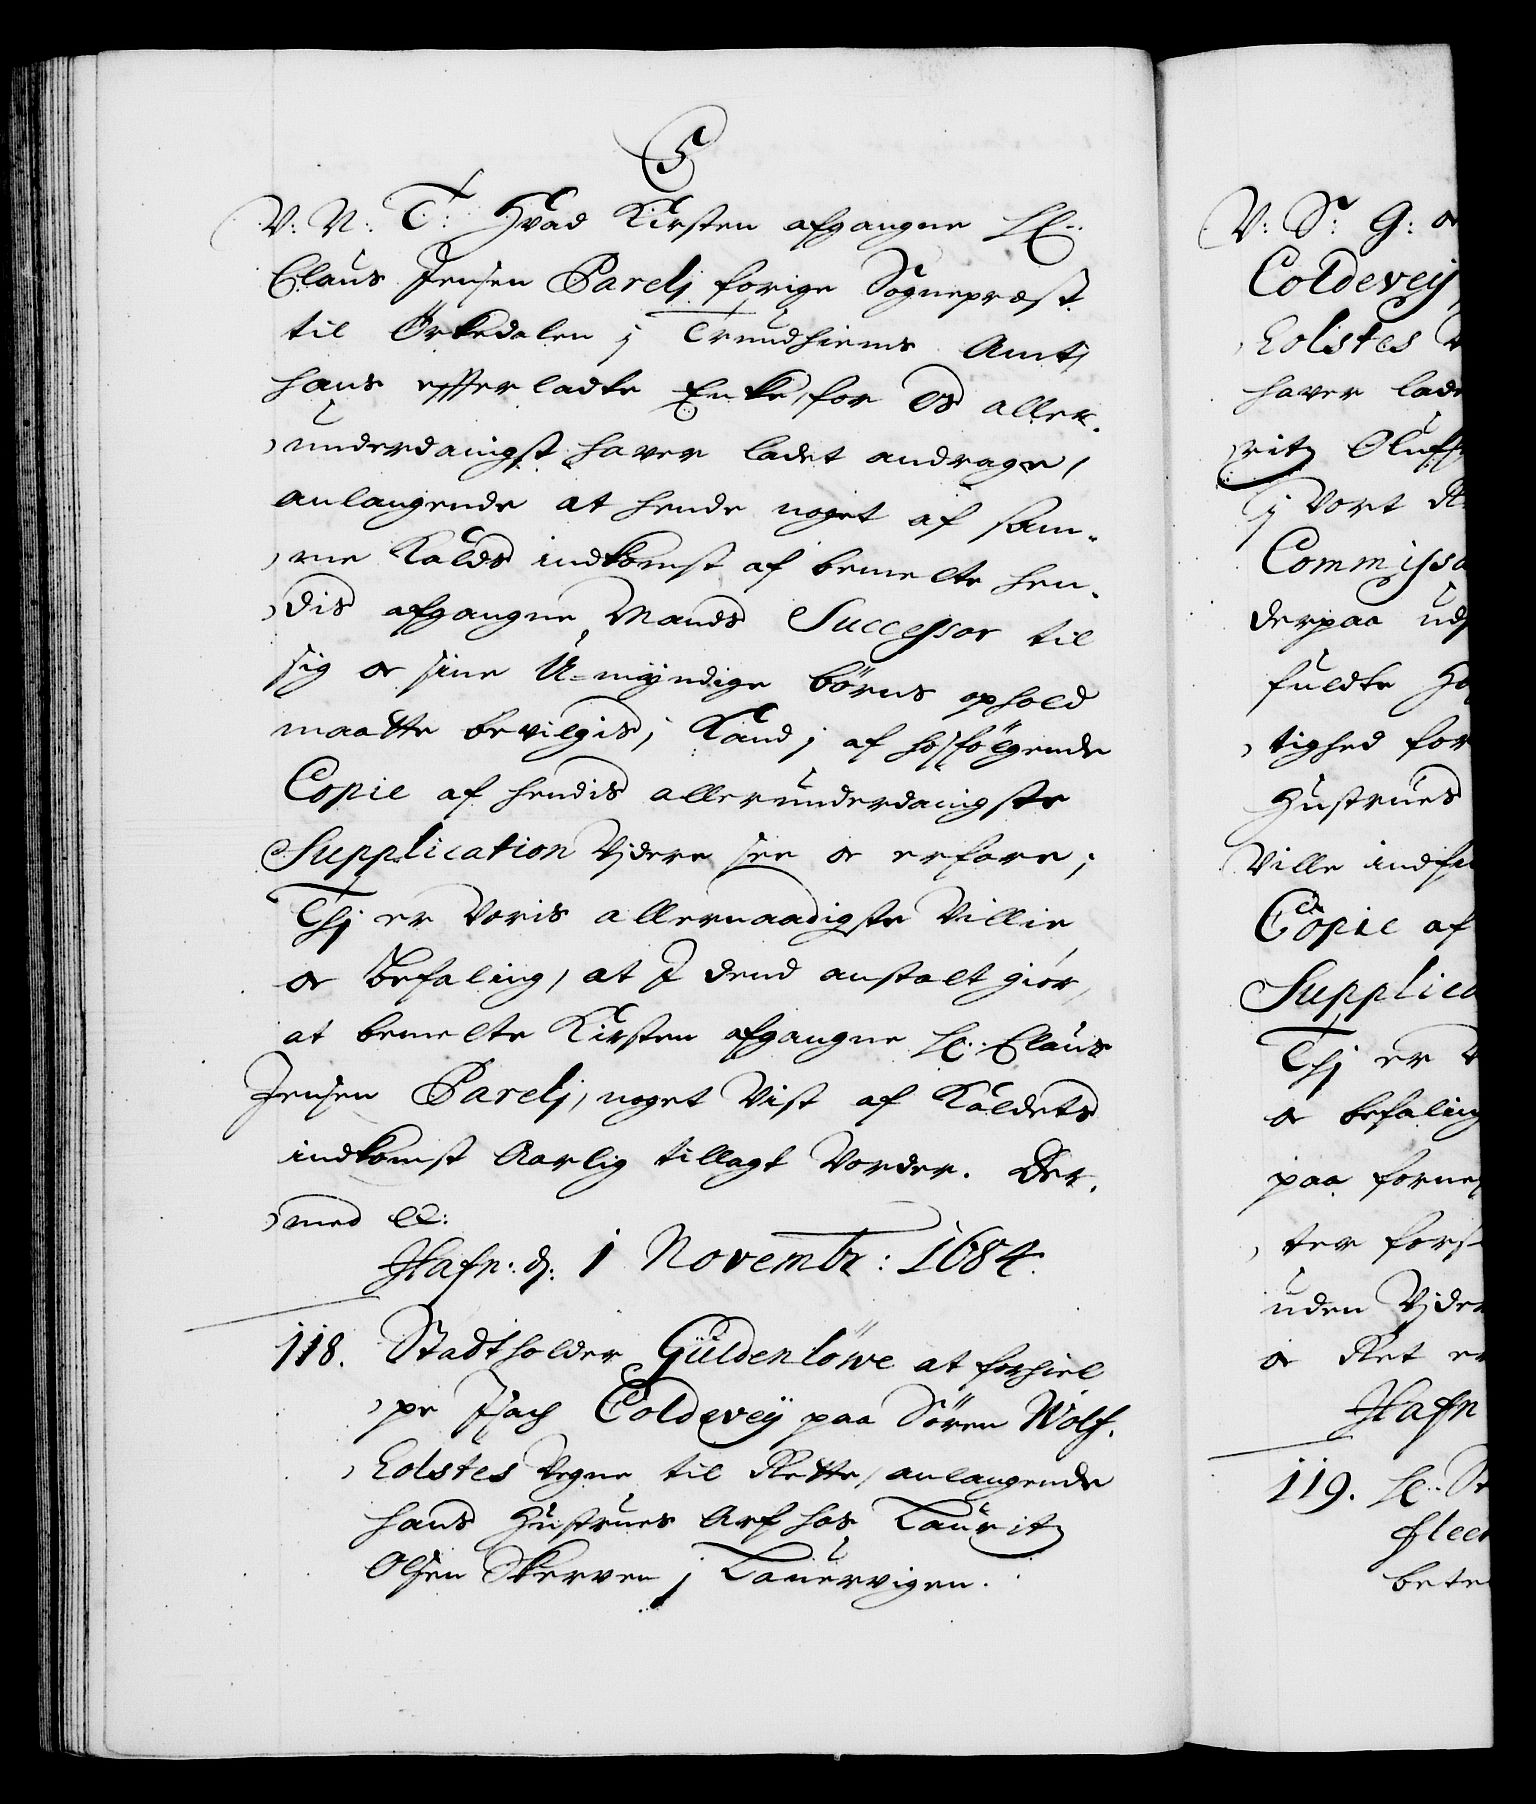 C5
V: V: T: Hvad Kirsten afgangne Hr:
Claus Jensen Parelj forige Sognepræst
til Örkedalen j Trundhiems Amt,
hans effterladte Enke, for Os aller-
underdanigst haver ladet andrage,
anlangende at hende noget af sam-
me Kalds indkomst af bemelte hen-
dis afgangne Mands Successor til
sig oc sine U-mÿndige börns ophold
maatte bevilgis, Kand j af hosfölgende
Copie af hendis allerunderdanigste
Supplication Vjdere see oc erfare;
Thj er Voris allernaadigste Villie
oc befaling, at I dend anstalt giör,
at bemelte Kirsten afgangne Hr: Claus
Jensen Parelj, noget Vist af Kaldets
indkomst Aarlig tillagt Vorder. Der-
med etc:
Hafn: d: 1 Novembr: 1684.
118. Stadtholder Güldenlöwe at forhiel
pe Isach Coldeveÿ paa Sören Wolf-
Eolstes Vegne til Rette, anlangende
hans Hustrues Arf hos Lauritz
Olsen Skerven j Lauervigen.
V: S: G: oc
Coldeveÿ
Eolstes
haver lade
ritz Olufs
j Vort R
Commissa
derpaa uds
fuldte Ho
tighed for
Hustrues
Ville indfi
Copie af
Supplica
Thj er V
oc befaling
paa forne
ter fors
uden Vjder
oc Ret er
Hafn
119. Hr: St
flec
bete